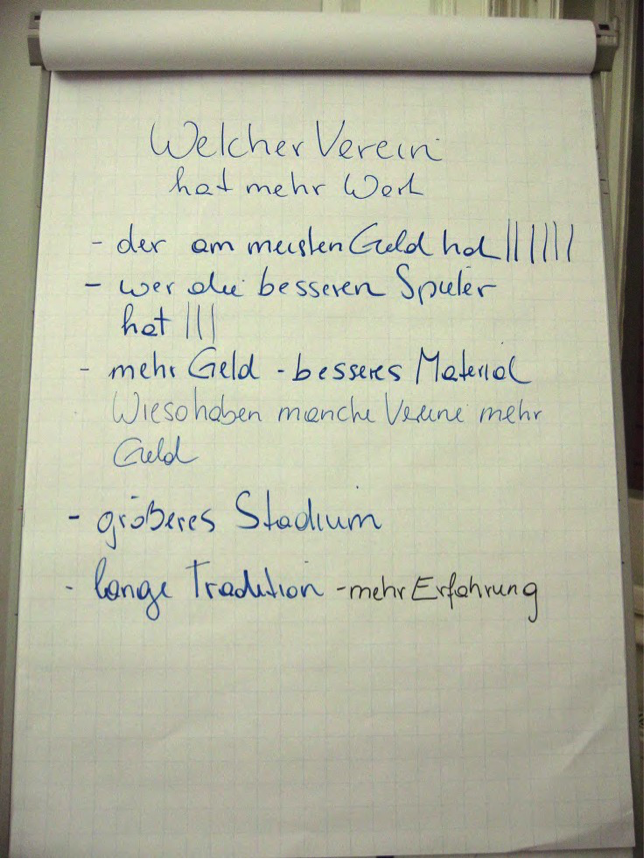 Welcher Verein
hat mehr Wert
- der am meisten Geld hat ||||||
- wer die besseren Spieler
hat |||
- mehr Geld - besseres Material
Wieso haben manche Vereine mehr
Geld
- größeres Stadium
- lange Tradition - mehr Erfahrung